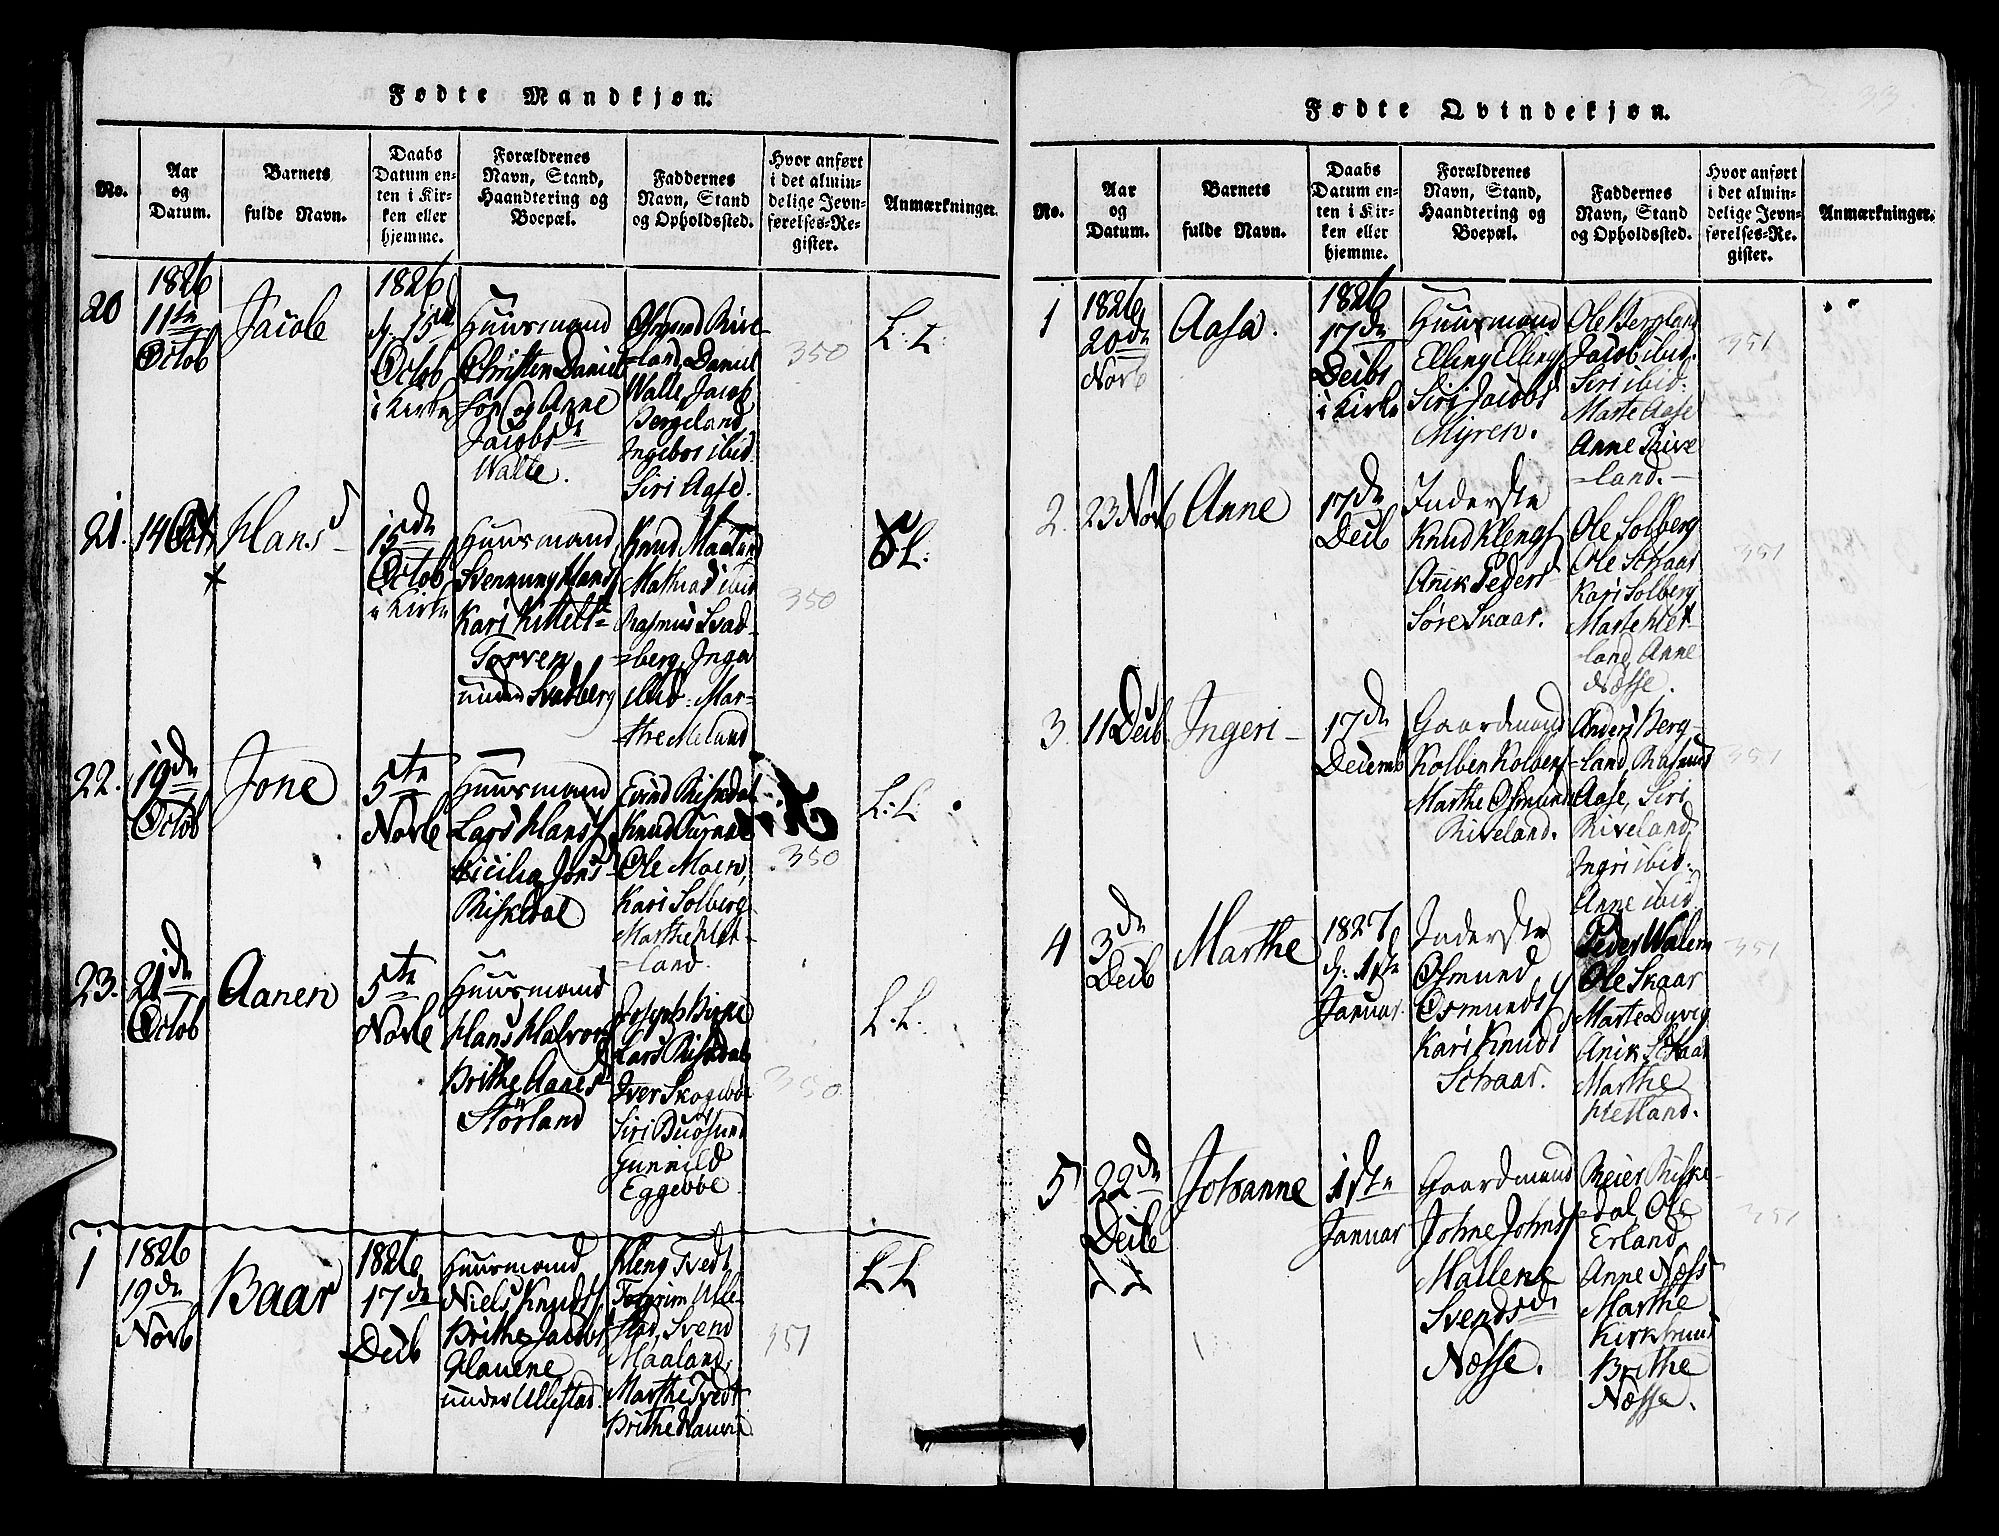 Fødte Mandkjøn.
No.
Aar
og
Datum.
Barnets
fulde Navn.
Daabs
Datum en-
ten i Kir-
ken eller
hjemme.
Forældrenes
Navn, Stand,
Haandtering og
Boepæl.
Faddernes
Navn, Stand
og Opholdssted.
Hvor anført
i det almin-
delige Jevn-
førelses-Re-
gister.
Anmærkninger.
20
1826
11te
Octob
Jacob
1826
d. 15de
Octob
i Kirke
Huusmand
Christen Daniel-
sen og Anne
Jacobsd
Walle.
Osmund Rive-
land, Daniel
Walle, Jacob
Bergeland,
Ingebor ibid:
Siri Aase.
350
L: L:
21.
14 Oct
Hans
15de
Octob
i Kirke
Huusmand
Svennung Hans
Kari Kittels
Torven
under Svadberg
Knud Maaland
Mathias ibid
Rasmus Svad-
berg, Inga
ibid: Mar-
the Meland
350
L:
22.
19de
Octob
Jone
5te
Novb
Huusmand
Lars Hans
Cicilia Jons
Riskedal
Eivind Riskedal
Knud
Ole Moen,
Kari Solberg
Marthe Het-
land.
350
L: L:
23.
21de
Octob
Aanen
5te
Novb
Huusmand
Hans Halvor
Brithe Aanes
Størland
Joseph Birke
Lars Riskedal
Iver Skogebøe
Siri
Gunnild
Eggebøe
350
L. L.
1
1826
19de
Novb
Baar
1826
17de
Decb
Huusmand
Niels Knuds
Brithe Jacobs
Hauene
under Ullestad.
Kleng Tvedt
Torgrim Ulle-
stad, Svend
Maaland,
Marthe Tvedt
Brithe Hauene
351
L L
Fødte Qvindekjøn.
33
No.
Aar
og
Datum.
Barnets
fulde Navn.
Daabs
Datum en-
ten i Kir-
ken eller
hjemme.
Forældrenes
Navn, Stand,
Haandtering og
Boepæl.
Faddernes
Navn, Stand
og Opholdssted.
Hvor anført
i det almin-
delige Jevn-
førelses-Re-
gister.
Anmærkninger.
1
1826
20de
Novb
Aasa.
1826
17de
Decbr
i Kirke
Huusmand
Elling Ellings
Siri Jacobs
Myren.
Ole Bergland
Jacob ibid:
Siri ibid:
Marte Aase
Anne Rive-
land.
351
2.
23 Novb
Anne
17de
Decb
Inderste
Knud Klengs
Anik Peders
Søre Skaar.
Ole Solberg
Ole Schaar
Kari Solberg
Marte Het-
land, Anne
Næsse.
351
3.
11 Decb
Ingeri
17de
Decemb
Gaardmand
Kolben Kolbens
Marthe Osmund
Riveland.
Anders Berg-
land, Rasmus
Aase, Siri
Riveland,
Ingri ibid:
Anne ibid.
351
4
3de
Decb
Marthe
1827
d. 1ste
Januar.
Inderste
Osmund
Osmunds
Kari Knuds
Schaar.
Peder Walem
Ole Skaar
Marte Dyveg
Anik Schaar
Marthe
Hetland.
351
5
22de
Decbe
Johanne
1ste
Januar
Gaardmand
Johne Johns
Mallene
Svendsd
Næsse.
Reier Riske-
dal, Ole
Erland,
Anne Næss
Marthe
Brithe
Næsse.
351